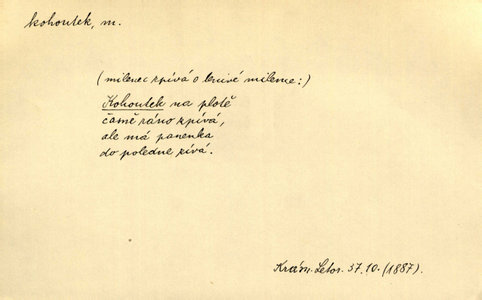 kohoutek, m.
(milenec zpívá o lenivé milence:)
Kohoutek na plotě
časně ráno zpívá,
ale má panenka
do poledne zívá.
Krám. Letov. 37. 10. (1887).